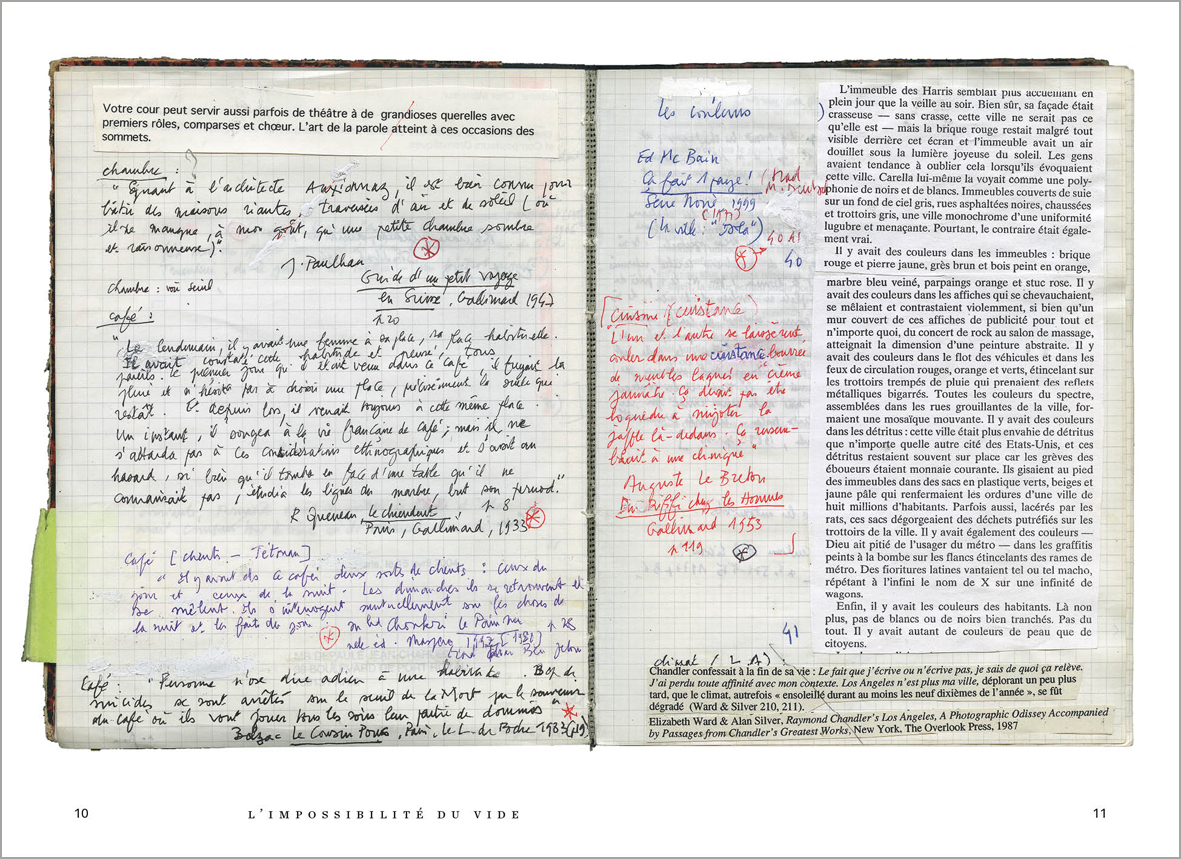 Votre cour peut servir aussi parfois de théâtre à de grandioses querelles avec
premiers rôles, comparses et chœur. L'art de la parole atteint à ces occasions des
sommets.
chambre :
" Quant à l'architecte , il est bien connu pour
bâtir des maisons riantes, traversées d'air et de soleil ( où
il me manque, à mon goût, qu'une petite chambre sombre
et raisonneuse)."
J. Paulhan
Guide d'un petit voyage
en Suisse, Gallimard 1947
p 20
chambre : voir seuil
café :
" Le lendemain, il y avait une femme à sa place, sa place habituelle.
Il avait cette habitude et
pareils. Le premier jour qu'il était venu dans ce café, il fuyait la
pluie et n'hésita pas à choisir une place, précisément la seule qui
restât. Et depuis lors, il venait toujours à cette même place.
Un instant, il songea à la vie française de café ; mais il ne
s'attarda pas à ces considérations ethnographiques et s'avança au
hasard, si bien qu'il tomba en face d'une table qu'il ne
connaissait pas, étudia les lignes du marbre, but son pernod."
p 8
R Queneau, le chiendent
Paris, Gallimard, 1933
Café [clients - Tétouan]
" Il y avait ds ce café deux sortes de clients : ceux du
jour et ceux de la nuit. Les dimanches ils se retrouvaient et
se mêlaient. Ils s'interrogent mutuellement sur les choses de
la nuit et les faits du jour "
Choukri le Pain nu p 28
Maspero [1980]
Tahar Ben Jelloun
Café : "Personne n'ose dire adieu à une habitude. Bcp de
suicides se sont arrêtés sur le seuil de la Mort par le souvenir
du café où ils vont jouer tous les soirs leur partie de dominos "
Balzac Le Cousin Pons, Paris, le L. de Poche 1983
les couleurs
Ed Mc Bain
Ça fait 1 paye !
(trad
M.
Série Noire 1999
(la ville : "Isola")
40 A1
40
L'immeuble des Harris semblait plus accueillant en
plein jour que la veille au soir. Bien sûr, sa façade était
crasseuse — sans crasse, cette ville ne serait pas ce
qu'elle est — mais la brique rouge restait malgré tout
visible derrière cet écran et l'immeuble avait un air
douillet sous la lumière joyeuse du soleil. Les gens
avaient tendance à oublier cela lorsqu'ils évoquaient
cette ville. Carella lui-même la voyait comme une poly-
phonie de noirs et de blancs. Immeubles couverts de suie
sur un fond de ciel gris, rues asphaltées noires, chaussées
et trottoirs gris, une ville monochrome d'une uniformité
lugubre et menaçante. Pourtant, le contraire était égale-
ment vrai.
Il y avait des couleurs dans les immeubles : brique
rouge et pierre jaune, grès brun et bois peint en orange,
marbre bleu veiné, parpaings orange et stuc rose. Il y
avait des couleurs dans les affiches qui se chevauchaient,
se mêlaient et contrastaient violemment, si bien qu'un
mur couvert de ces affiches de publicité pour tout et
n'importe quoi, du concert de rock au salon de massage,
atteignait la dimension d'une peinture abstraite. Il y
avait des couleurs dans le flot des véhicules et dans les
feux de circulation rouges, orange et verts, étincelant sur
les trottoirs trempés de pluie qui prenaient des reflets
métalliques bigarrés. Toutes les couleurs du spectre,
assemblées dans les rues grouillantes de la ville, for-
maient une mosaïque mouvante. Il y avait des couleurs
dans les détritus : cette ville était plus envahie de détritus
que n'importe quelle autre cité des Etats-Unis, et ces
détritus restaient souvent sur place car les grèves des
éboueurs étaient monnaie courante. Ils gisaient au pied
des immeubles dans des sacs en plastique verts, beiges et
jaune pâle qui renfermaient les ordures d'une ville de
huit millions d'habitants. Parfois aussi, lacérés par les
rats, ces sacs dégorgeaient des déchets putréfiés sur les
trottoirs de la ville. Il y avait également des couleurs —
Dieu ait pitié de l'usager du métro — dans les graffitis
peints à la bombe sur les flancs étincelants des rames de
métro. Des fioritures latines vantaient tel ou tel macho,
répétant à l'infini le nom de X sur une infinité de
wagons.
Enfin, il y avait les couleurs des habitants. Là non
plus, pas de blancs ou de noirs bien tranchés. Pas du
tout. Il y avait autant de couleurs de peau que de
citoyens.
[Cuisine (cuistance)
L'un et l'autre se laissèrent
couler dans une cuistance bourrée
de meubles laqués en crème
jaunâtre. Ça devait pas être
à mijoter la
jaffe là-dedans. Ça ressem-
blait à une clinique "
Auguste Le Breton
Du Rififi chez les Hommes
Gallimard 1953
p 119
41
climat ( L A) :
Chandler confessait à la fin de sa vie : Le fait que j'écrive ou n'écrive pas, je sais de quoi ça relève.
J'ai perdu toute affinité avec mon contexte. Los Angeles n'est plus ma ville, déplorant un peu plus
tard, que le climat, autrefois « ensoleillé durant au moins les neuf dixièmes de l'année », se fût
dégradé (Ward & Silver 210, 211).
Elizabeth Ward & Alan Silver, Raymond Chandler's Los Angeles, A Photographic Odissey Accompanied
by Passages from Chandler's Greatest Works, New York, The Overlook Press, 1987
10
L'IMPOSSIBILITÉ DU VIDE
11